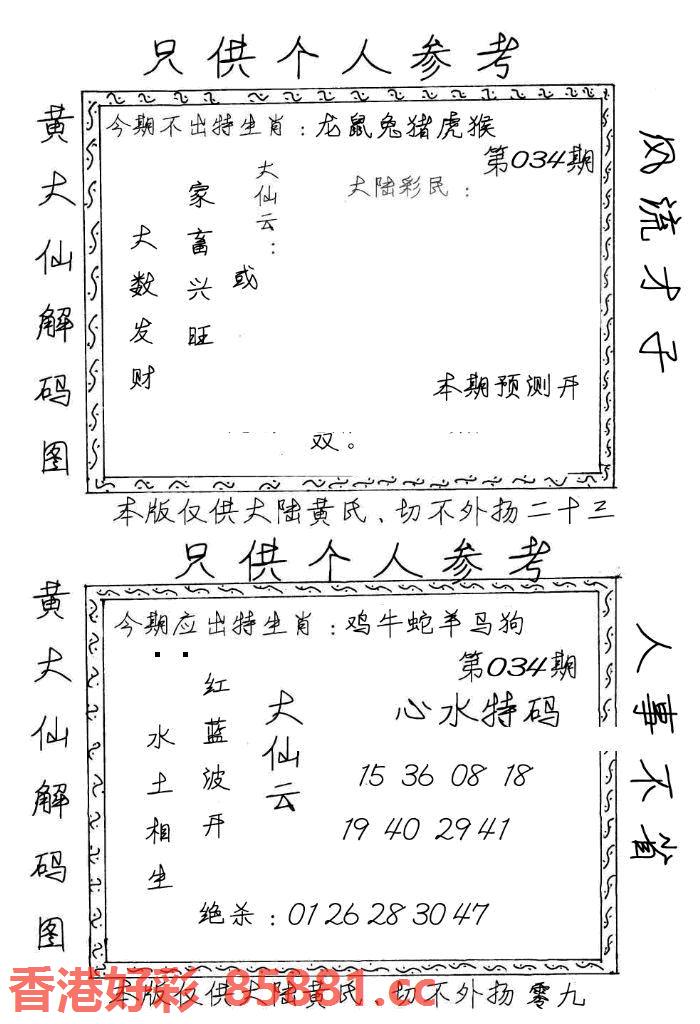 只供个人参考
黄大仙解码图
今期不出特生肖：龙鼠兔猪虎猴
第034期
大仙云：
家畜兴旺
或
大数发财
大陆彩民：
本期预测开
双。
风流才子
本版仅供大陆黄氏、切不外扬二十三
只供个人参考
黄大仙解码图
今期应出特生肖：鸡牛蛇羊马狗
第034期
大仙云
红蓝波开
水土相生
心水特码
15 36 08 18
19 40 29 41
绝杀：01 26 28 30 47
人事不省
本版仅供大陆黄氏、切不外扬零九
香港好彩 85881.cc